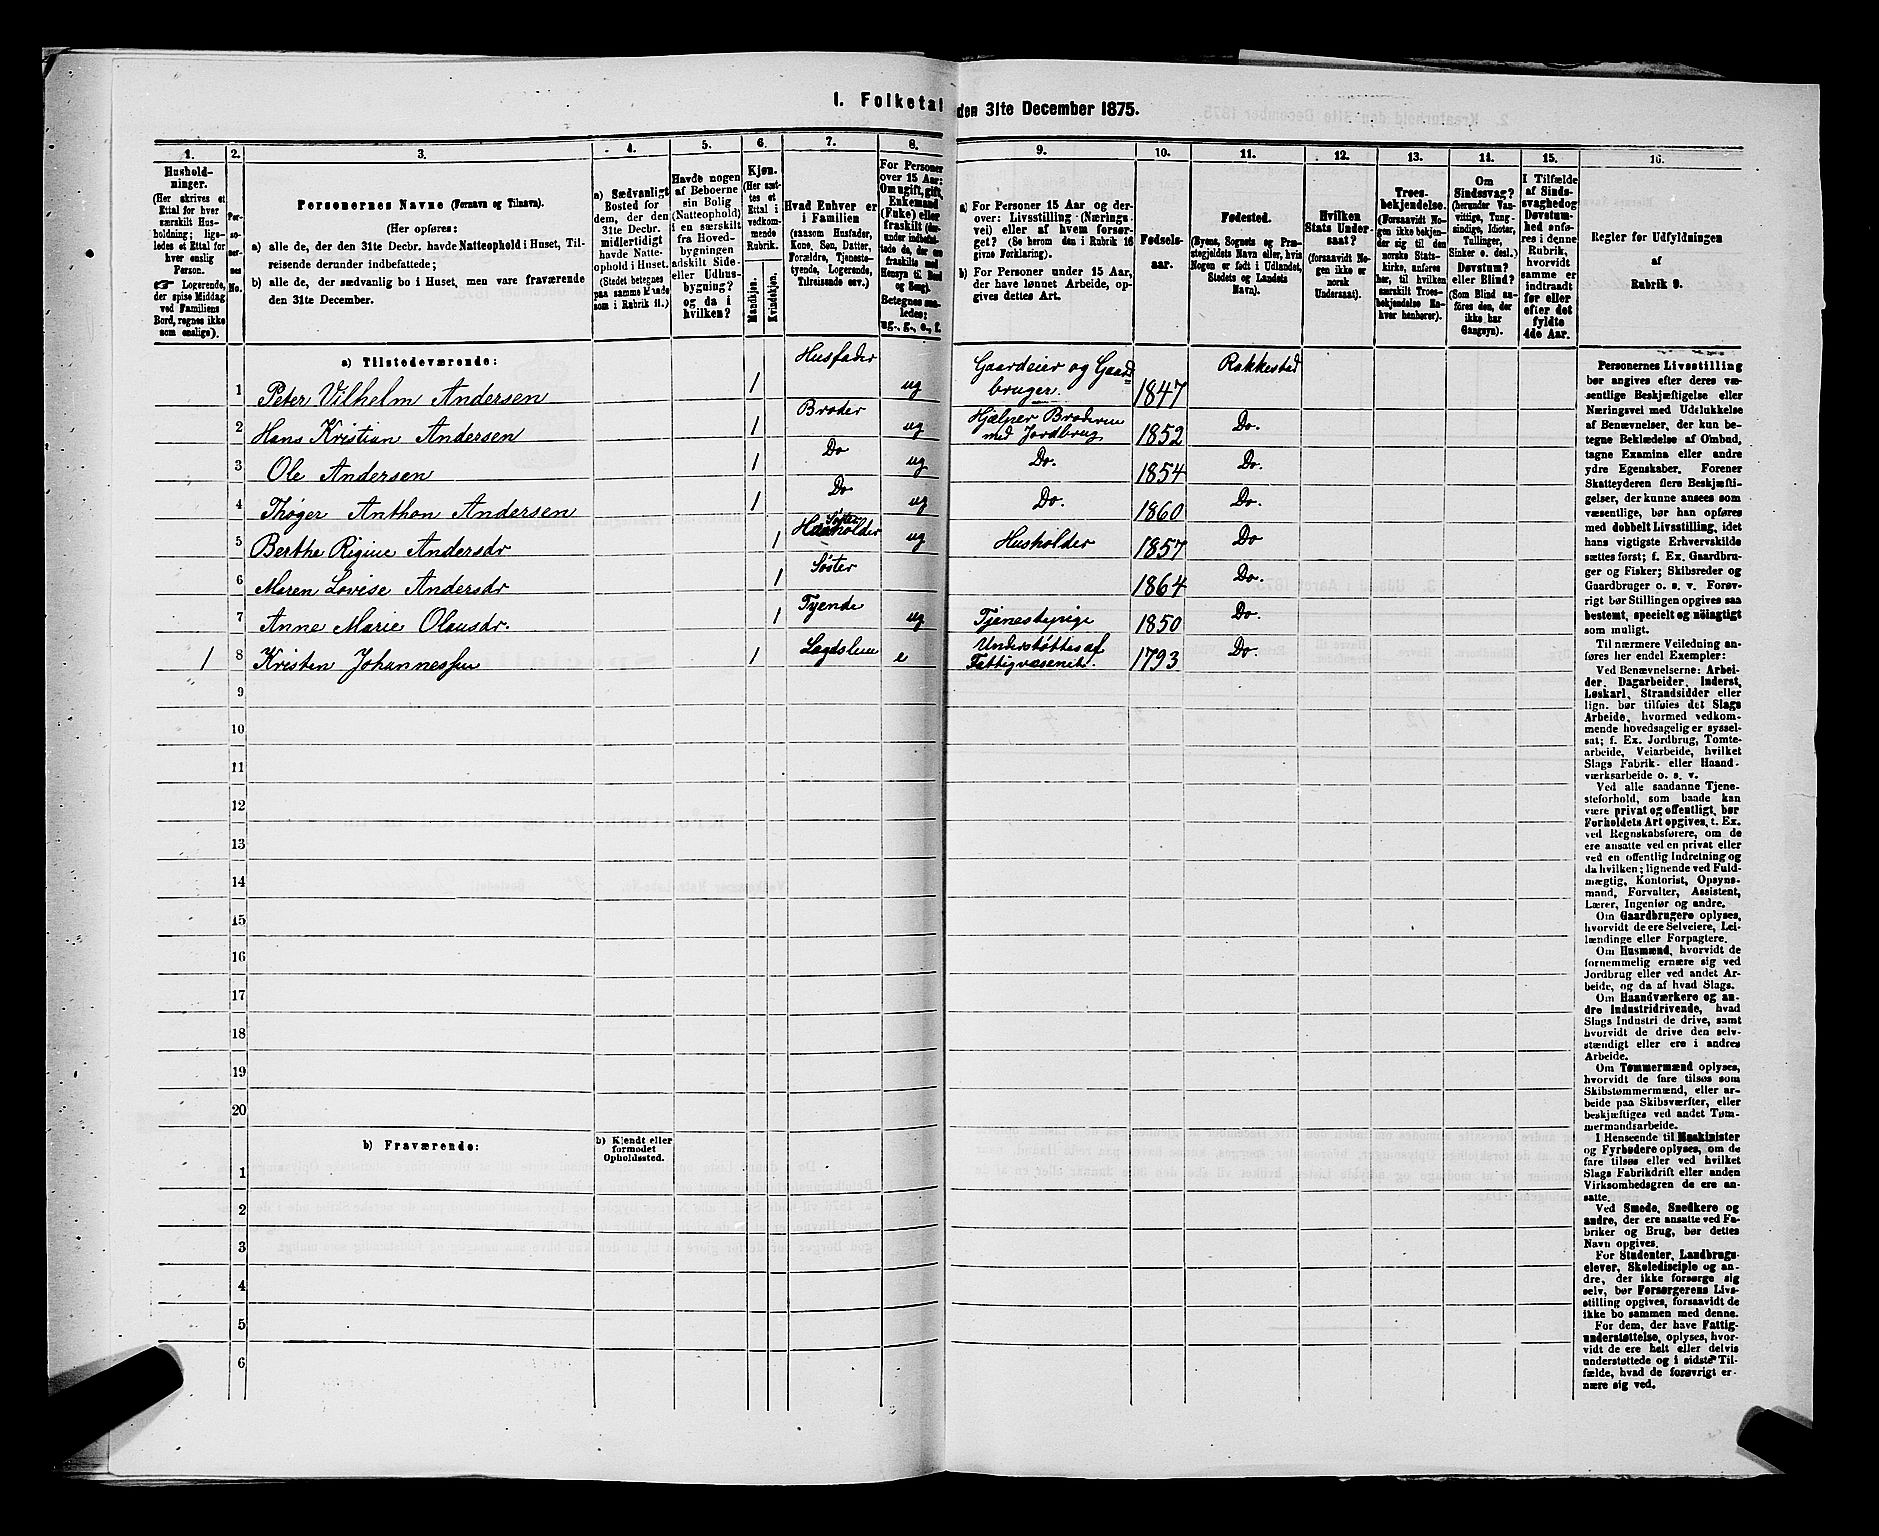 1. Folketal den 31te December 1875.
1. 2. 3. 4. 5. 6. 7. 8. 9. 10. 11. 12. 13. 14. 15. 16.
Hushold-
ninger.
(Her skrives et
Ettal for hver
særskilt Hus-
holdning; lige-
ledes et Ettal for
hver enslig
Person.
☞ Logerende,
der spise Middag
ved Familiens
Bord, regnes ikke
som enslige).
Per-
so-
ner-
nes
No.
Personernes Navne (Fornavn og Tilnavn).
(Her opføres:
a) alle de, der den 31te Decbr. havde Natteophold i Huset, Til-
reisende derunder indbefattede;
b) alle de, der sædvanlig bo i Huset, men vare fraværende
den 31te December.
a) Sædvanligt
Bosted for
dem, der den
31te Decbr.
midlertidigt
havde Natte-
ophold i Huset.
(Stedet betegnes
paa samme Maade
som i Rubrik 11.)
Havde nogen
af Beboerne
sin Bolig
(Natteophold)
i en særskilt
fra Hoved-
bygningen
adskilt Side-
eller Udhus-
bygning?
og da i
hvilken?
Kjøn.
(Her sæt-
tes et
Ettal i
vedkom-
mende
Rubrik.
Mandkjøn.
Kvindekjøn.
Hvad Enhver er
i Familien
(saasom Husfader,
Kone, Søn, Datter,
Forældre, Tjeneste-
tyende, Logerende,
Tilreisende osv.)
For Personer
over 15 Aar:
Om ugift, gift,
Enkemand
(Enke) eller
fraskilt (der-
under indbefat-
tede de, der ere
fraskilte med
Hensyn til Bord
og Seng).
Betegnes saa-
ledes:
ug., g., e., f.
a) For Personer 15 Aar og der-
over: Livsstilling (Nærings-
vei) eller af hvem forsør-
get? (Se herom den i Rubrik 16
givne Forklaring).
b) For Personer under 15 Aar,
der have lønnet Arbeide, op-
gives dettes Art.
Fødsels-
aar.
Fødested.
(Byens, Sognets og Præ-
stegjeldets Navn eller, hvis
Nogen er født i Udlandet,
Stedets og Landets
Navn).
Hvilken
Stats Under-
saat?
(forsaavidt No-
gen ikke er
norsk
Undersaat).
Troes-
bekjendelse.
(Forsaavidt No-
gen ikke bekjen-
der sig til den
norske Stats-
kirke, anføres
her, til hvilken
særskilt Troes-
bekjendelse En-
hver henhører).
Om
Sindssvag?
(herunder Van-
vittige, Tung-
sindige, Idioter,
Tullinger,
Sinker o. desl.)
Døvstum?
eller Blind?
(Som Blind an-
føres den, der
ikke har
Gangsyn).
I Tilfælde
af Sinds-
svaghed og
Døvstum-
hed anfø-
res i denne
Rubrik,
hvorvidt
samme er
indtraadt
før eller
efter det
fyldte
4de Aar.
Regler for Udfyldningen
af
Rubrik 9.
a) Tilstedeværende:
1 Peter Vilhelm Andersen 1 Husfader ug Gaardeier og Gaard
bruger 1847 Rakkestad
2 Hans Kristian Andersen 1 Broder ug Hjælper Broderen
med Jordbrug 1852 Do.
3 Ole Andersen 1 Do ug Do. 1854 Do.
4 Thøger Anthon Andersen 1 Do ug Do. 1860 Do.
5 Berthe Rigine Andersdr 1 Søster
Husholder ug Husholder 1857 Do
6 Maren Lovise Andersdr 1 Søster 1864 Do.
7 Anne Marie Olausdr. 1 Tyende ug Tjenestepige 1850 Do.
1 8 Kristen Johannessen 1 Lægdslem e Understøttes af
Fattigvæsenet. 1793 Do.
9
10
11
12
13
14
15
16
17
18
19
20
b) Fraværende:
b) Kjendt eller
formodet
Opholdssted.
1
2
3
4
5
6
Personernes Livsstilling
bør angives efter deres væ-
sentlige Beskjæftigelse eller
Næringsvei med Udelukkelse
af Benævnelser, der kun be-
tegne Beklædelse af Ombud,
tagne Examina eller andre
ydre Egenskaber. Forener
Skatteyderen flere Beskjæfti-
gelser, der kunne ansees som
væsentlige, bør han opføres
med dobbelt Livsstilling, idet
hans vigtigste Erhvervskilde
sættes først; f. Ex. Gaardbru-
ger og Fisker; Skibsreder og
Gaardbruger o. s. v. Forøv-
rigt bør Stillingen opgives saa
bestemt, specielt og nøiagtigt
som muligt.
Til nærmere Veiledning an-
føres her endel Exempler:
Ved Benævnelserne: Arbei-
der, Dagarbeider, Inderst,
Løskarl, Strandsidder eller
lign. bør tilføies det Slags
Arbeide, hvormed vedkom-
mende hovedsagelig er syssel-
sat; f. Ex. Jordbrug, Tomte-
arbeide, Veiarbeide, hvilket
Slags Fabrik- eller Haand-
værksarbeide o. s. v.
Ved alle saadanne Tjene-
steforhold, som baade kan
være privat og offentligt, bør
Forholdets Art opgives, t. Ex.
ved Regnskabsførere, om de
ere ansatte ved en privat eller
ved en offentlig Indretning og
da hvilken; lignende ved Fuld-
mægtig, Kontorist, Opsyns-
mand, Forvalter, Assistent,
Lærer, Ingeniør og andre.
Om Gaardbrugere oplyses,
hvorvidt de ere Selveiere, Lei-
lændinge eller Forpagtere.
Om Husmænd, hvorvidt de
fornemmelig ernære sig ved
Jordbrug eller ved andet Ar-
beide, og da af hvad Slags.
Om Haandværkere og an-
dre Industridrivende, hvad
Slags Industri de drive, samt
hvorvidt de drive den selv-
stændigt eller ere i andres
Arbeide.
Om Tømmermænd oplyses,
hvorvidt de fare tilsøs som
Skibstømmermænd, eller ar-
beide paa Skibsværfter, eller
beskjæftiges ved andet Tøm-
mermandsarbeide.
I Henseende til Maskinister
og Fyrbødere oplyses, om de
fare tilsøs eller ved hvilket
Slags Fabrikdrift eller anden
Virksomhedsgren de ere an-
satte.
Ved Smede, Snedkere og
andre, der ere ansatte ved Fa-
briker og Brug, bør dettes
Navn opgives.
For Studenter, Landbrugs-
elever, Skoledisciple og an-
dre, der ikke forsørge sig
selv, bør Forsørgerens Livs-
stilling opgives, forsaavidt de
ikke bo sammen med denne.
For dem, der have Fattig-
understøttelse, oplyses, hvor-
vidt de ere helt eller delvis
understøttede og i sidste Til-
fælde, hvad de forøvrigt er-
nære sig ved.